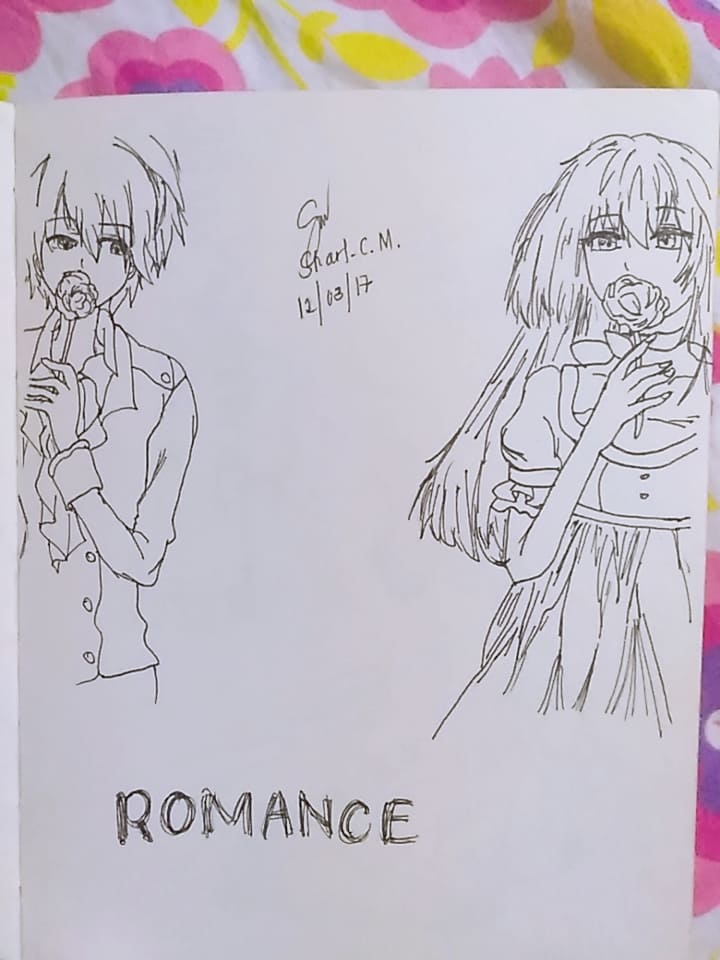 Sharl.C.M.
12/03/17
ROMANCE